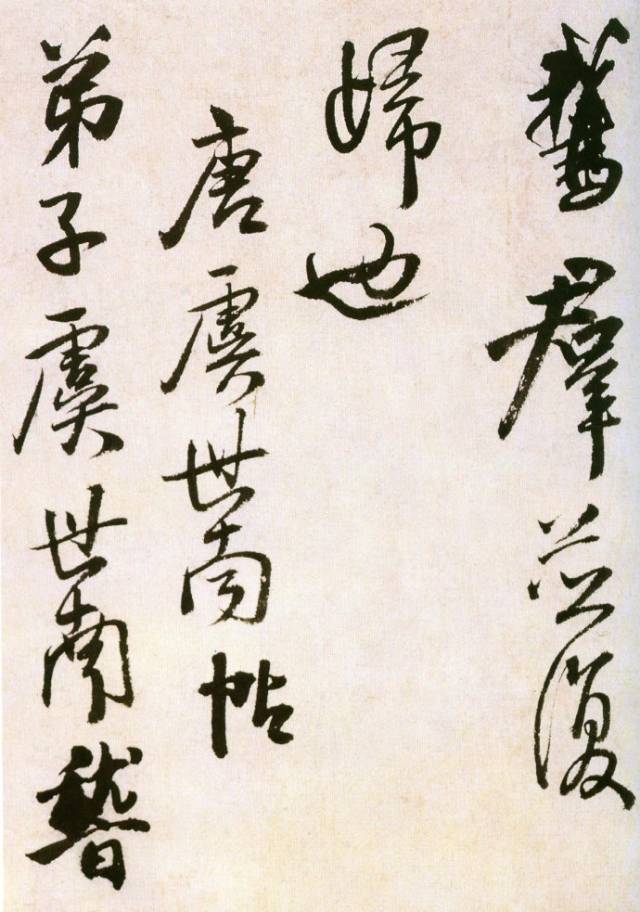 鵞羣並復
歸也
唐虞世南帖
弟子虞世南稽